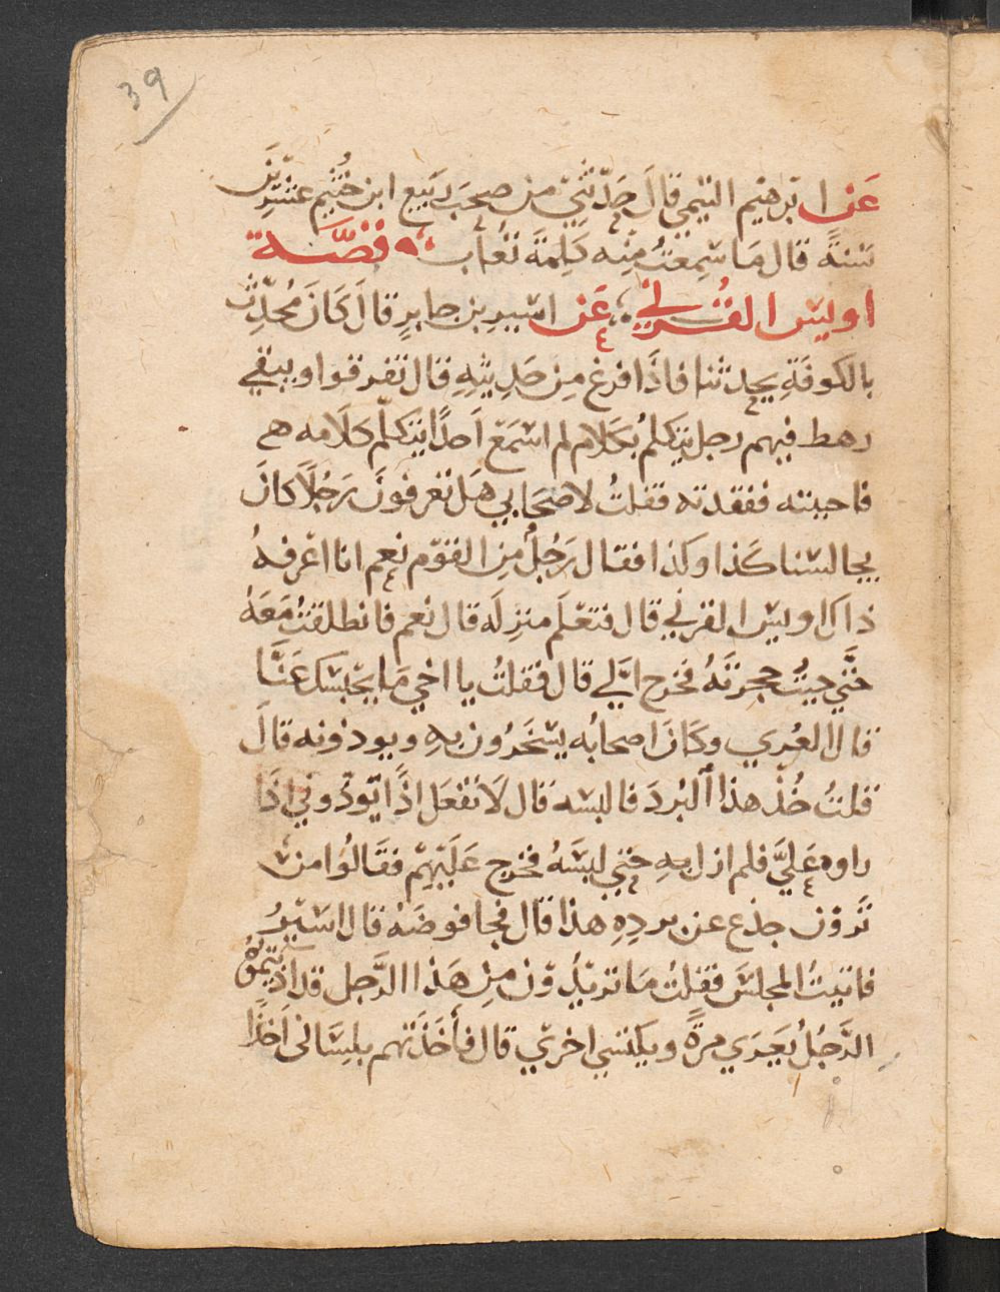 39
عَن ابرهيم التيمي قالَ حَدّثني من صحبَ ربَيع ابن خُثيم عشرِينَ
سَنةً قال مَا سَمِعتُ مِنه كَلِمَةً تُعاب قصّة
اويس القَرني عَن اسَيرِ بن جابرٍ قالَ كَانَ مُحدِّث
بالكوفَةِ يحدثنا فاذَا فرغ مِن حَدِيثِهِ قال تفرقوا ويبقي
رهط فيهم رجل يتكلمُ بكلام لم اسمَع اَحدًا يتكلّم كلَامه هي
فاحببته ففقدته فقلتُ لاصحَابي هَل تعرفونَ رَجُلًا كانَ
يجالسنا كَذا وكذا فقال رَجُل مِن القوم نعم انا اعْرفهُ
ذاك اويس القرني قال فتعلَم منزلَه قال نعم فانطلقتُ مَعَهُ
حَتَّي جيتُ حجرتَهُ فخرج اليَّ قال فقلتُ يا اخي مَا يحْبسكَ عَنَّا
قال العُري وكَانَ اصحابُه يَسْخَرُون بهِ ويوذونه قالَ
قلتُ خُذْ هذا البُردَ فالبسْه قال لَا تفْعَل اذًا يوذُوني اذَا
راوه عَليَّ فلم ازل بهِ حتي لبسَهُ فخرج عَلَيْهِمْ فقَالُوا من
تَروْن خدع عن بردِهِ هذا قال فجا فوضَعَهُ قال اسَيْرُ
فاتيتُ المجلسَ فقلتُ مَا تريدُوْن مِن هَذا الرَّجل قد اذيتمُوْهُ
الرَّجُلُ يَعرَي مرةً ويكتسي اخري قال فأخَذْتهم بلِسَاني اَخذًا